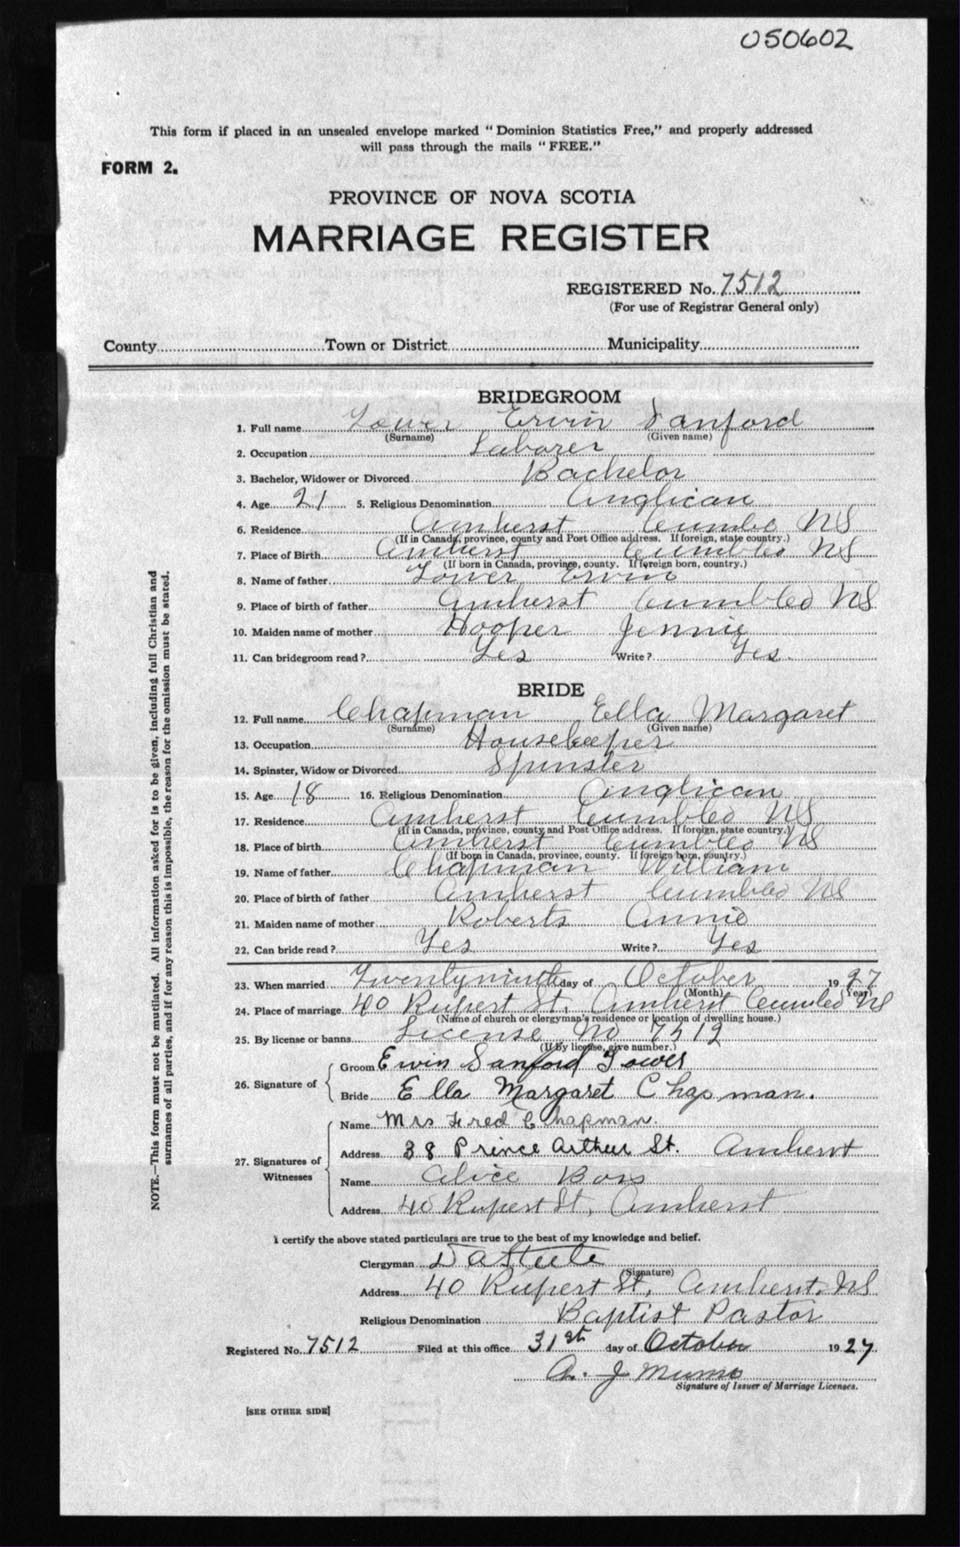 050602
This form if placed in an unsealed envelope marked "Dominion Statistics Free," and properly addressed
will pass through the mails "FREE."
FORM 2.
PROVINCE OF NOVA SCOTIA
MARRIAGE REGISTER
REGISTERED No. 7512
(For use of Registrar General only)
County Town or District Municipality
BRIDEGROOM
1. Full name Tower Ervin Sanford
(Surname) (Given name)
2. Occupation Laborer
3. Bachelor, Widower or Divorced Bachelor
4. Age 21 5. Religious Denomination Anglican
6. Residence Amherst Cumbo NS
(If in Canada, province, county and Post Office address. If foreign, state country.)
7. Place of Birth Amherst Cumbleo NS
(If born in Canada, province, county. If foreign born, country.)
8. Name of father Tower Ervin
9. Place of birth of father Amherst Cumbleo NS
10. Maiden name of mother Hooper Jennie
11. Can bridegroom read? Yes Write? Yes.
BRIDE
12. Full name Chapman Ella Margaret
(Surname) (Given name)
13. Occupation Housekeeper
14. Spinster, Widow or Divorced Spinster
15. Age 18 16. Religious Denomination Anglican
17. Residence Amherst Cumbleo NS
(If in Canada, province, county and Post Office address. If foreign, state country.)
18. Place of birth Amherst Cumbleo NS
(If born in Canada, province, county. If foreign born, country.)
19. Name of father Chapman William
20. Place of birth of father Amherst Cumbleo NS
21. Maiden name of mother Roberts Annie
22. Can bride read? Yes Write? Yes
23. When married Twentyninth day of October 1927
(Month) (Year)
24. Place of marriage 40 Rupert St, Amherst Cumbleo NS
(Name of church or clergyman's residence or location of dwelling house.)
25. By license or banns License No 7512
(If by license, give number.)
26. Signature of
Groom Ervin Sanford Tower
Bride Ella Margaret Chapman.
27. Signatures of Witnesses
Name Mrs Fred Chapman.
Address 38 Prince Arthur St. Amherst
Name Alice Boss
Address 40 Rupert St, Amherst
I certify the above stated particulars are true to the best of my knowledge and belief.
Clergyman D A Steele
(Signature)
Address 40 Rupert St, Amherst. NS
Religious Denomination Baptist Pastor
Registered No. 7512 Filed at this office 31st day of October 1927.
A. J Munro
Signature of Issuer of Marriage Licenses.
[SEE OTHER SIDE]
NOTE.—This form must not be mutilated. All information asked for is to be given, including full Christian and
surnames of all parties, and if for any reason this is impossible, the reason for the omission must be stated.